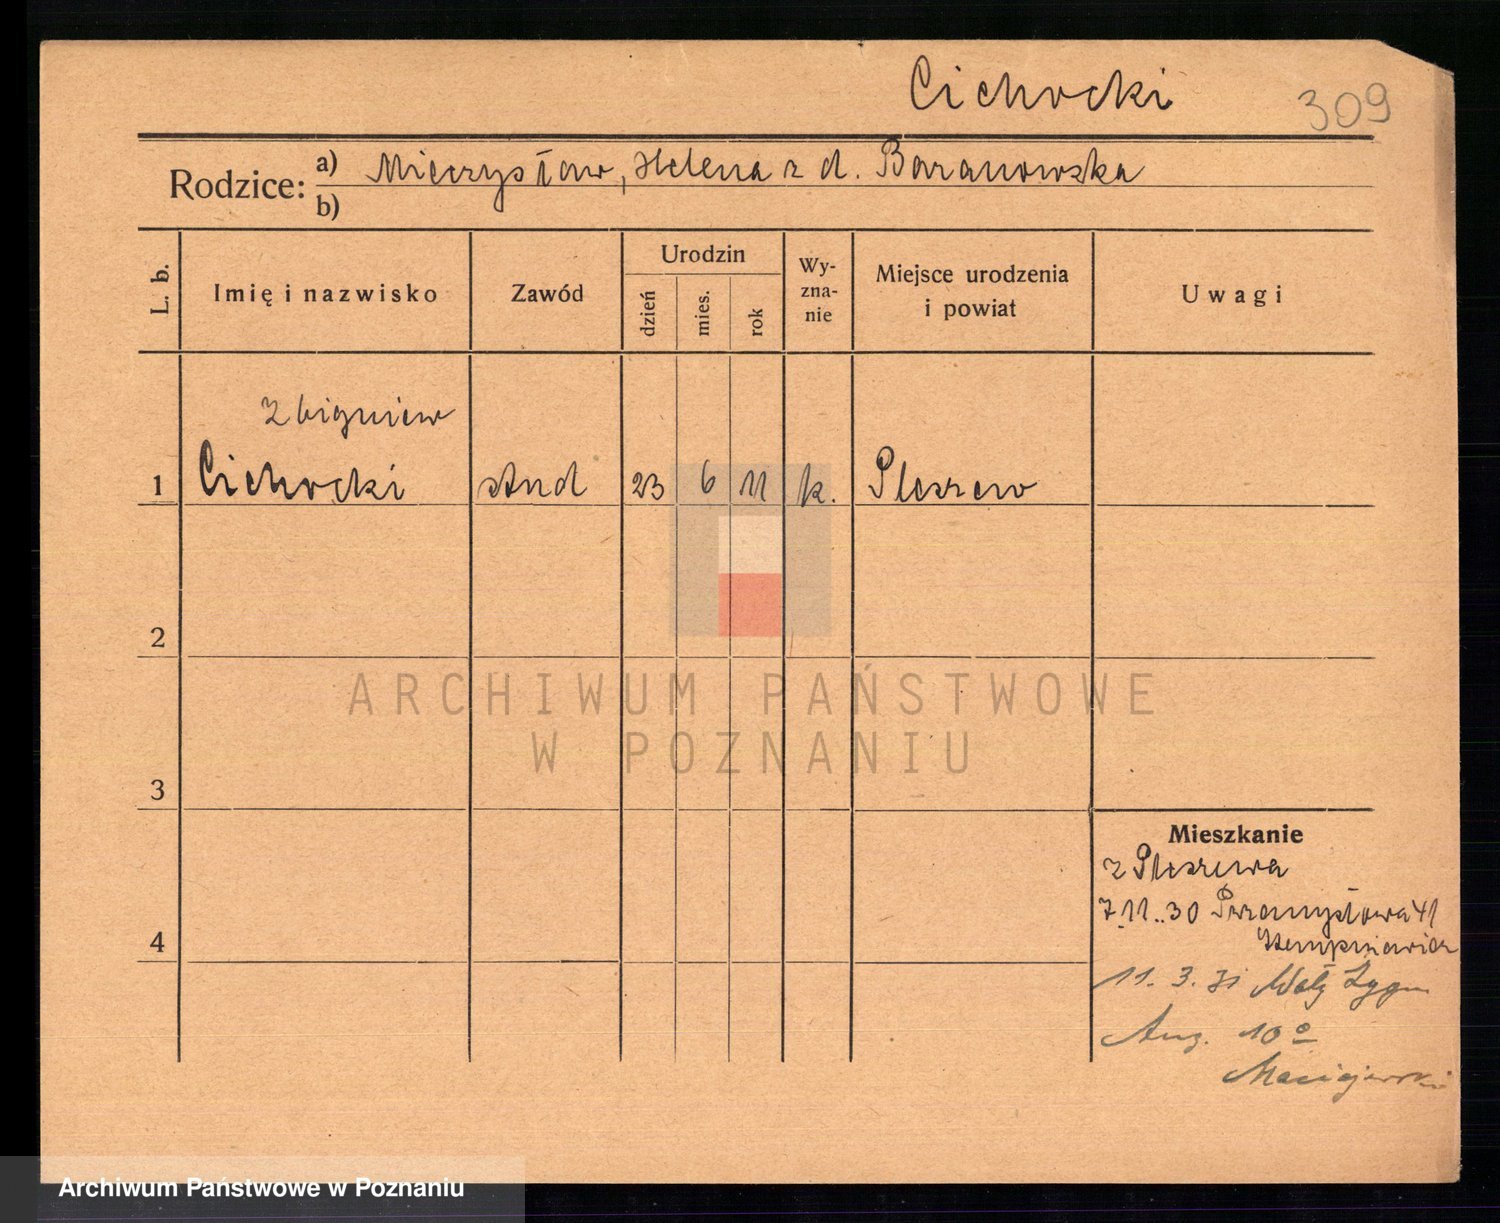 Cichocki
309
Rodzice: a) Mieczysław, Helena z d. Baranowska
b)
L. b.
Imię i nazwisko
Zawód
Urodzin
dzień
mies.
rok
Wy-
zna-
nie
Miejsce urodzenia
i powiat
Uwagi
Zbigniew
1 Cichocki stud 23 6 11 k. Pleszew
2
ARCHIWUM PAŃSTWOWE
W POZNANIU
3
Mieszkanie
z Pleszewa
7.11..30 Przemysłowa 41
4
11. 3. 31
Aug. 10
Maciejewski
Archiwum Państwowe w Poznaniu